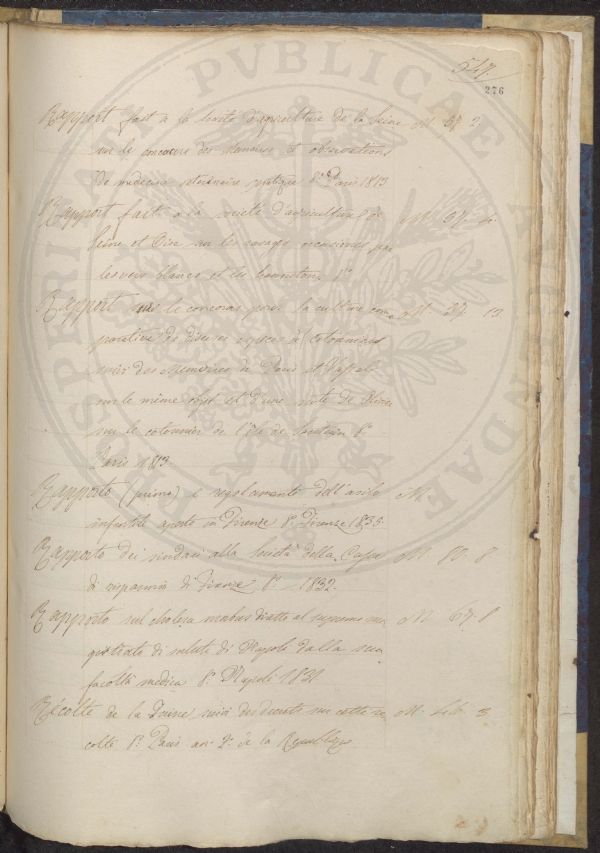 547.
276
Rapport fait à la société d'agriculture de la Seine M. 2
sur le concours des memoires et observations
de medecine veterinaire pratique 8° Paris 1813
Rapport fait à la société d'agriculture de M.
Seine et Oise sur les ravages occasionés par
les vers blancs et les hannetons 8°
Rapport sur le concours pour la culture com M. 27. 13.
parative de diverses especes de cotonniers
suivi des Memoires de
sur le même objet et d'une note de
sur le cotonnier de l'île de 8°
Paris 1813
Rapporto (primo) e regolamento dell'asilo M
infantile aperto in Firenze 8° Firenze 1835
Rapporto dei sindaci alla Società della Cassa M. 80. 8
di risparmio di Firenze 8° 1832.
Rapporto sul cholera morbus diretto al supremo ma M. 67. 8
gistrato di salute di Napoli dalla sua
facoltà medica 8° Napoli 1831
Récolte de la suivi des decrets sur cette re M. 3
colte 8° Paris an 2° de la Republique
PROSPERITATI PVBLICAE AVGENDAE